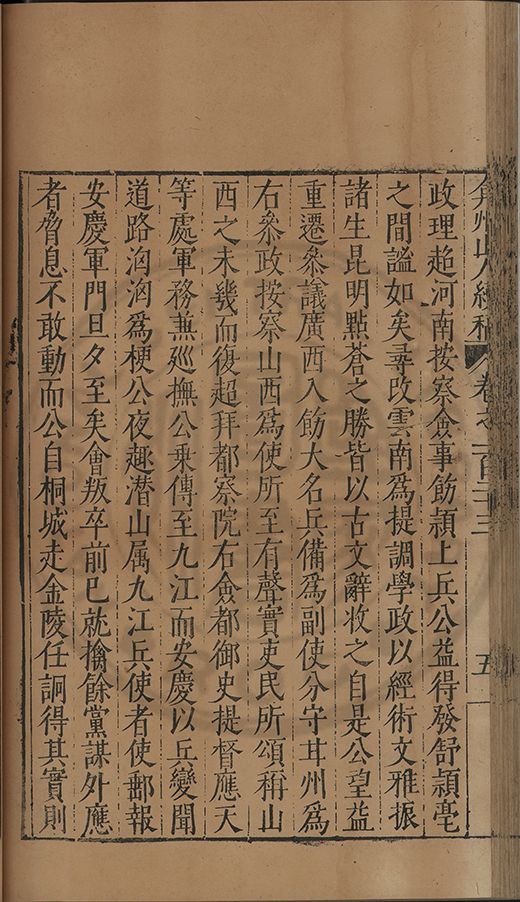 弇州山人續稿 卷之一百三十三 五
政理超河南按察僉事飭潁上兵公益得發舒潁亳
之間謐如矣尋改雲南爲提調學政以經術文雅振
諸生昆明點蒼之勝皆以古文辭收之自是公望益
重遷參議廣西入飭大名兵備爲副使分守甘州爲
右參政按察山西爲使所至有聲實吏民所頌稱山
西之未幾而復超拜都察院右僉都御史提督應天
等處軍務兼巡撫公乘傳至九江而安慶以兵變聞
道路洶洶爲梗公夜趣潛山属九江兵使者使郵報
安慶軍門旦夕至矣會叛卒前已就擒餘黨謀外應
者脅息不敢動而公自桐城走金陵任詗得其實則